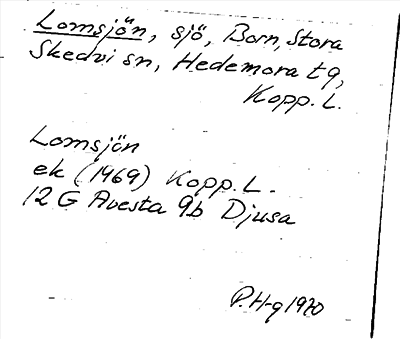 Lomsjön, sjö, Born, Stora
Skedvi sn, Hedemora tg,
Kopp. L.
Lomsjön
ek (1969) Kopp. L.
12 G Avesta 9b Djusa
P. H-g 1970